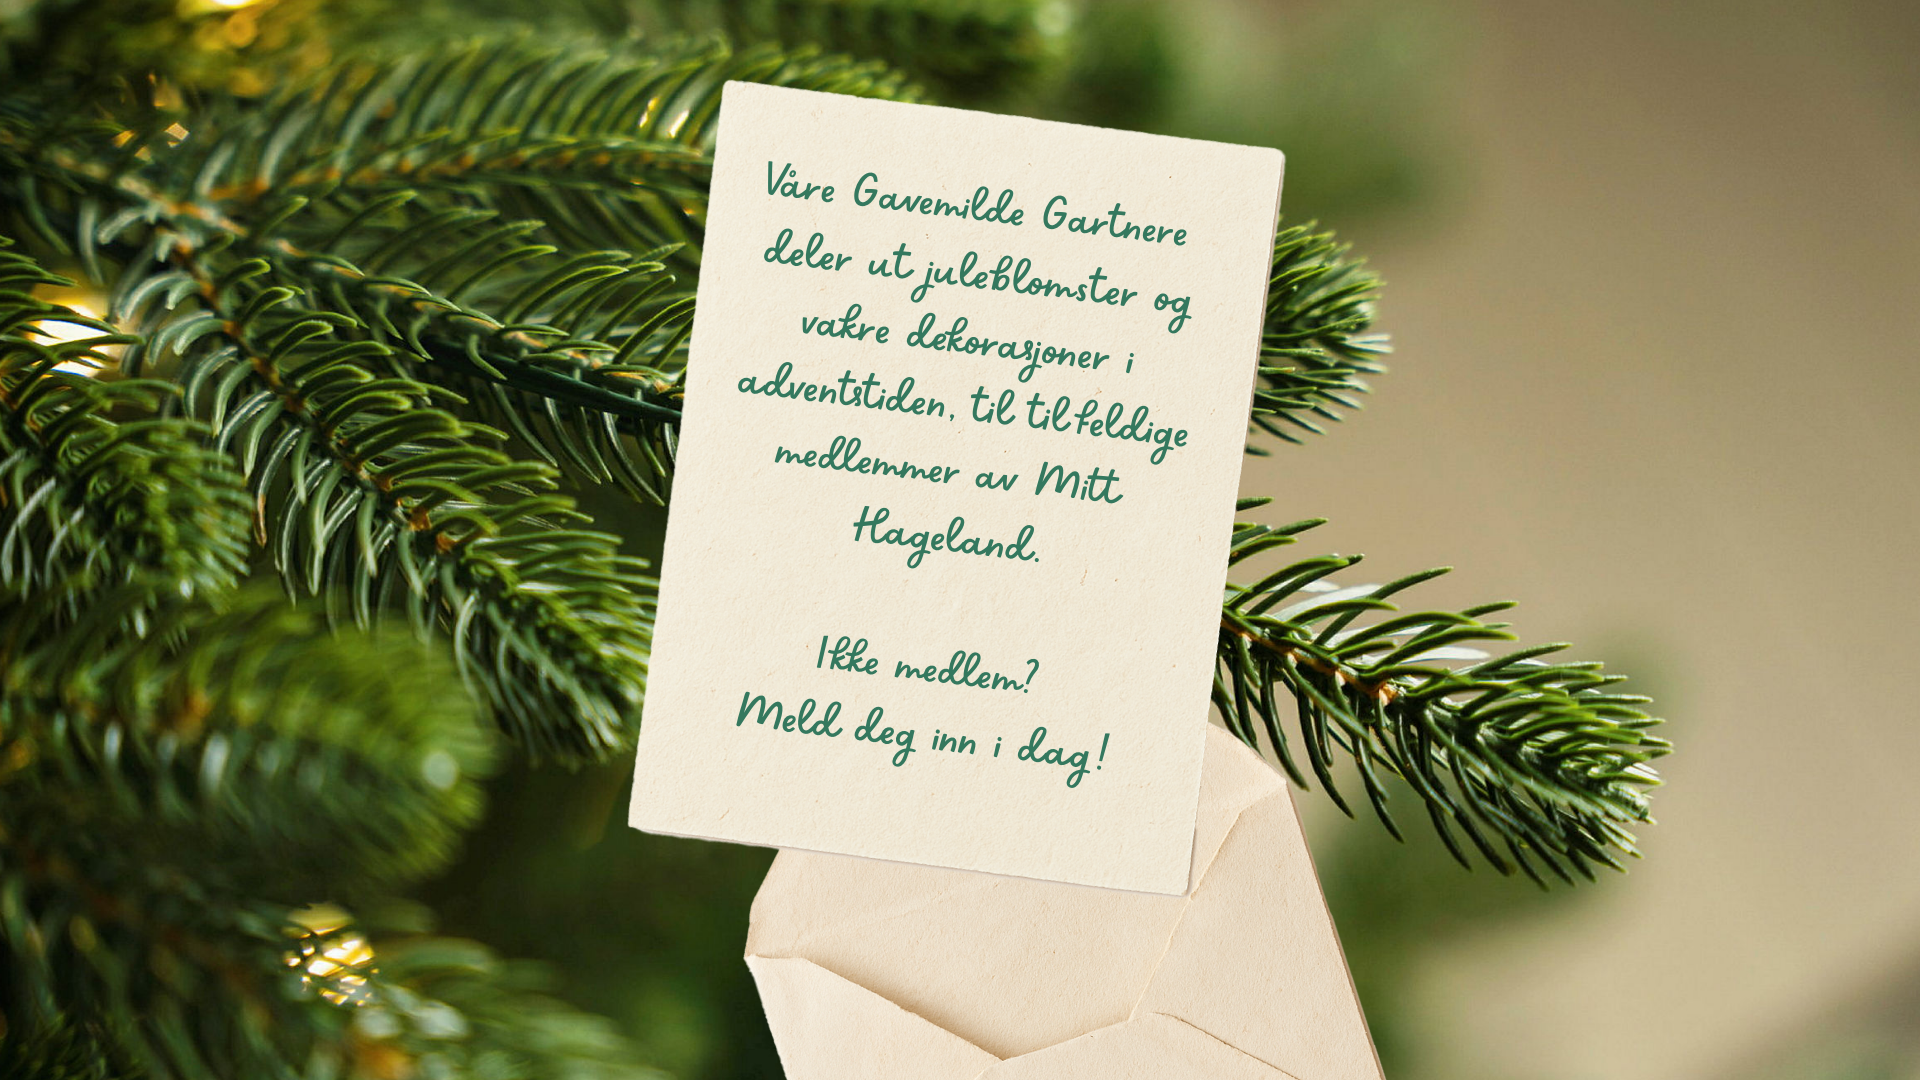 Våre Gavemilde Gartnere
deler ut juleblomster og
vakre dekorasjoner i
adventstiden, til tilfeldige
medlemmer av Mitt
Hageland.
Ikke medlem?
Meld deg inn i dag!